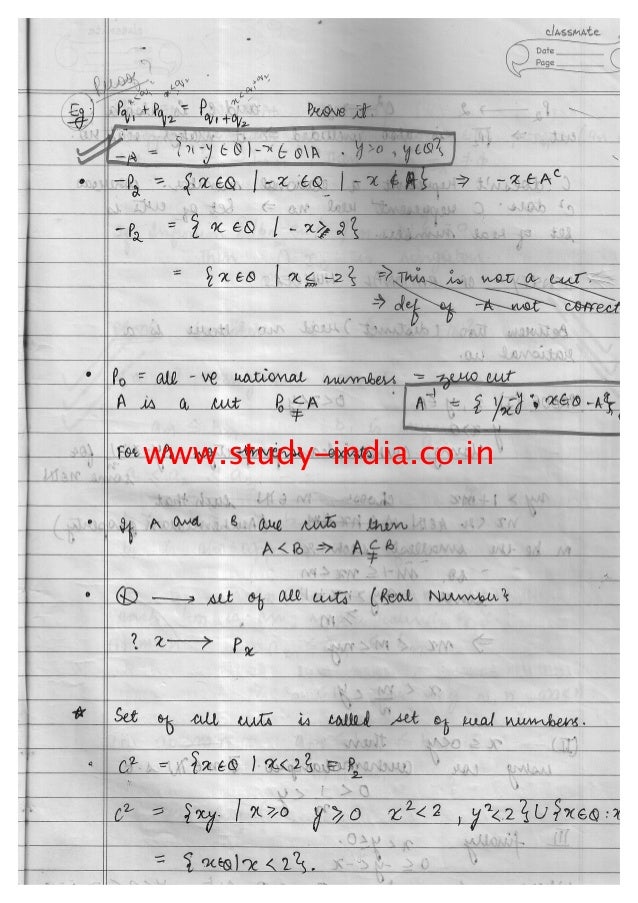 classmate
Date
Page
Eg P_{q1} + P_{q2} = P_{q1+q2} Prove it.
-A = {x-y ∈ Q | -x ∈ Q\A, y>0, y∈Q}
• -P₂ = {x∈Q | -x ∈Q | -x ∉ A} ⇒ -x∈A^c
-P₂ = {x∈Q | -x ≥ 2}
= {x∈Q | x ≤ -2} ⇒ This is not a cut.
⇒ def of -A not correct
• P₀ = all -ve rational numbers = zero cut
A is a cut P₀ ⊊ A
A⁻¹ = { 1/x - y : x∈Q - A
For A
www.study-india.co.in
• If A and B are cuts then
A<B ⇒ A ⊊ B
• ⟶ set of all cuts (Real Number}
? x ⟶ P_x
* Set of all cuts is called set of real numbers.
• C² = {x∈Q | x<2} = P₂
C² = {xy. | x≥0 y≥0 x²<2, y²<2} ∪ {x∈Q : x
= {x∈Q | x<2}.